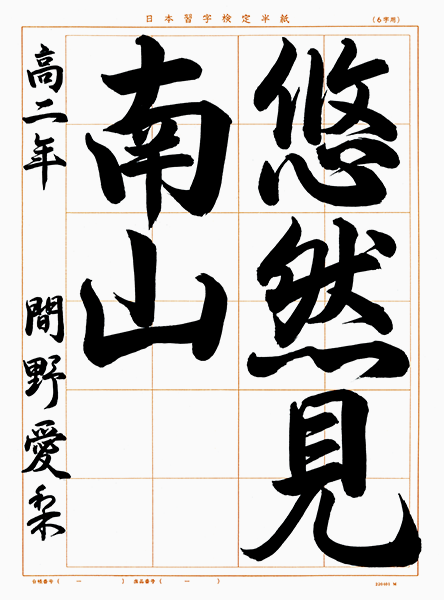 日本習字検定半紙
(6字用)
悠然見
南山
高二年 間野愛梨
合格番号( ー ) 賞品番号( ー )